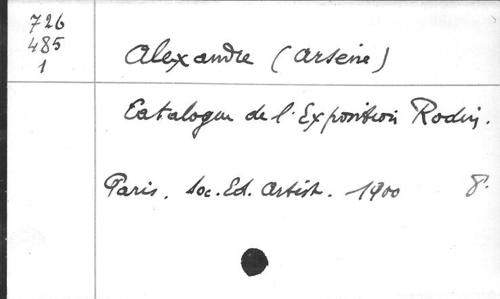 726
485
1
Alexandre (Arsène)
Catalogue de l'Exposition Rodin.
Paris. Soc. Ed. Artist. 1900 8°.